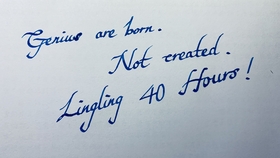 Genius are born.
Not created.
Lingling 40 Hours!